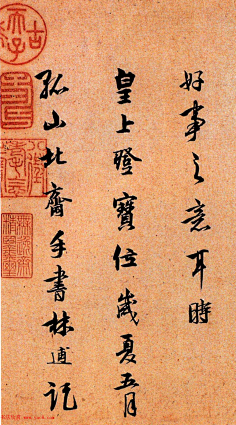 好事之意耳時
皇上登寶位歲夏五月
孤山北齋手書林逋記